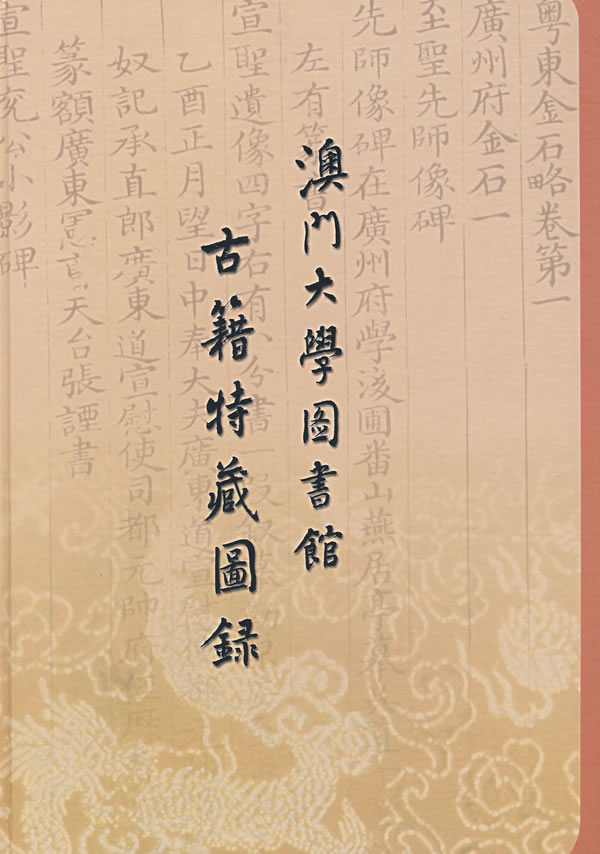 澳門大學图書館
古籍特藏圖録
粵東金石略卷第一
廣州府金石一
至聖先師像碑
先師像碑在廣州府學後圃番山燕居亭
左有
宣聖遺像四字右有八分書一段
乙酉正月望日中奉大夫廣東道宣慰使
奴記承直郎廣東道宣慰使司都元帥府經歷
篆額廣東憲天台張諲書
宣聖兗公小影碑